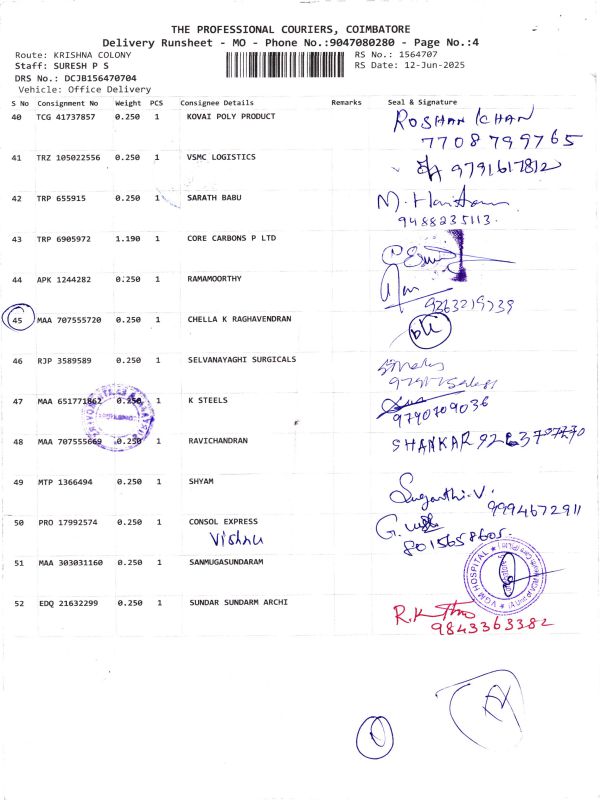 THE PROFESSIONAL COURIERS, COIMBATORE
Delivery Runsheet - MO - Phone No.:9047080280 - Page No.:4
Route: KRISHNA COLONY RS No.: 1564707
Staff: SURESH P S RS Date: 12-Jun-2025
DRS No.: DCJB156470704
Vehicle: Office Delivery
S No Consignment No Weight PCS Consignee Details Remarks Seal & Signature
40 TCG 41737857 0.250 1 KOVAI POLY PRODUCT ROSHAN KHAN
7708799765
41 TRZ 105022556 0.250 1 VSMC LOGISTICS 9791617812
42 TRP 655915 0.250 1 SARATH BABU
9488235113
43 TRP 6905972 1.190 1 CORE CARBONS P LTD
44 APK 1244282 0.250 1 RAMAMOORTHY
9263219739
45 MAA 707555720 0.250 1 CHELLA K RAGHAVENDRAN
46 RJP 3589589 0.250 1 SELVANAYAGHI SURGICALS
47 MAA 651771862 0.250 1 K STEELS
9790709036
48 MAA 707555669 0.250 1 RAVICHANDRAN SHANKAR
49 MTP 1366494 0.250 1 SHYAM Suganthi.V.
9994672911
50 PRO 17992574 0.250 1 CONSOL EXPRESS
Vishnu 8015658605.
51 MAA 303031160 0.250 1 SANMUGASUNDARAM VGM HOSPITAL
52 EDQ 21632299 0.250 1 SUNDAR SUNDARM ARCHI
9843363382